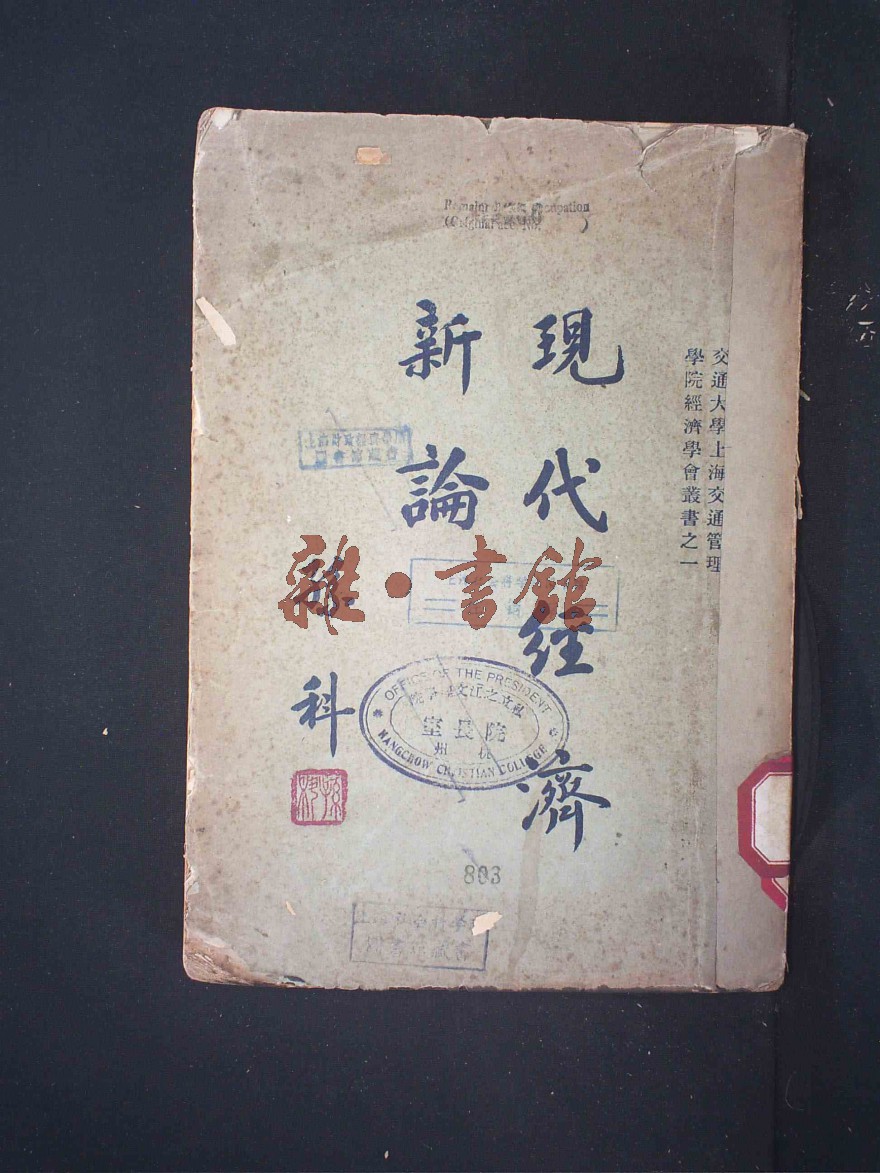 交通大學上海交通管理
學院經濟學會叢書之一
現代經濟
新論
孫科
雜·書館
OFFICE OF THE PRESIDENT
私立之江文理學院
院長室
杭州
HANGCHOW CHRISTIAN COLLEGE
803